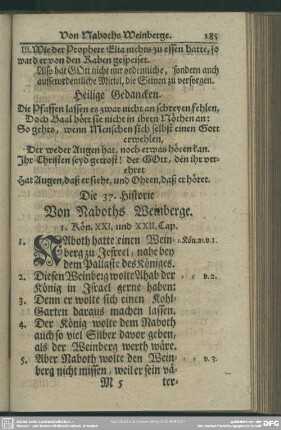 Von Naboths Weinberge. 185
III. Wie der Prophete Elia nichts zu essen hatte, so
ward er von den Raben gespeiset.
Also hat GOtt nicht nur ordentliche, sondern auch
ausserordentliche Mittel, die Seinen zu versorgen.
Heilige Gedancken.
Die Pfaffen lassen es zwar nicht an schreyen fehlen,
Doch Baal hört sie nicht in ihren Nöthen an:
So gehts, wenn Menschen sich selbst einen Gott
erwehlen,
Der weder Augen hat, noch etwas hören kan.
Ihr Christen seyd getrost! der GOtt, den ihr ver-
ehret
Hat Augen, daß er sieht, und Ohren, daß er höret.
Die 37. Historie
Von Naboths Weinberge.
1. Kön. XXI. und XXII. Cap.
1. NAboth hatte einen Wein- 1. Kön. 21. v. 1.
berg zu Jesreel, nahe bey
dem Pallaste des Königes.
2. Diesen Weinberg wolte Ahab der v. 2.
König in Israel gerne haben:
3. Denn er wolte sich einen Kohl-
Garten daraus machen lassen.
4. Der König wolte dem Naboth
auch so viel Silber davor geben,
als der Weinberg werth wäre.
5. Aber Naboth wolte den Wein- v. 3.
berg nicht missen, weil er sein vä-
M 5 ter-
DFG